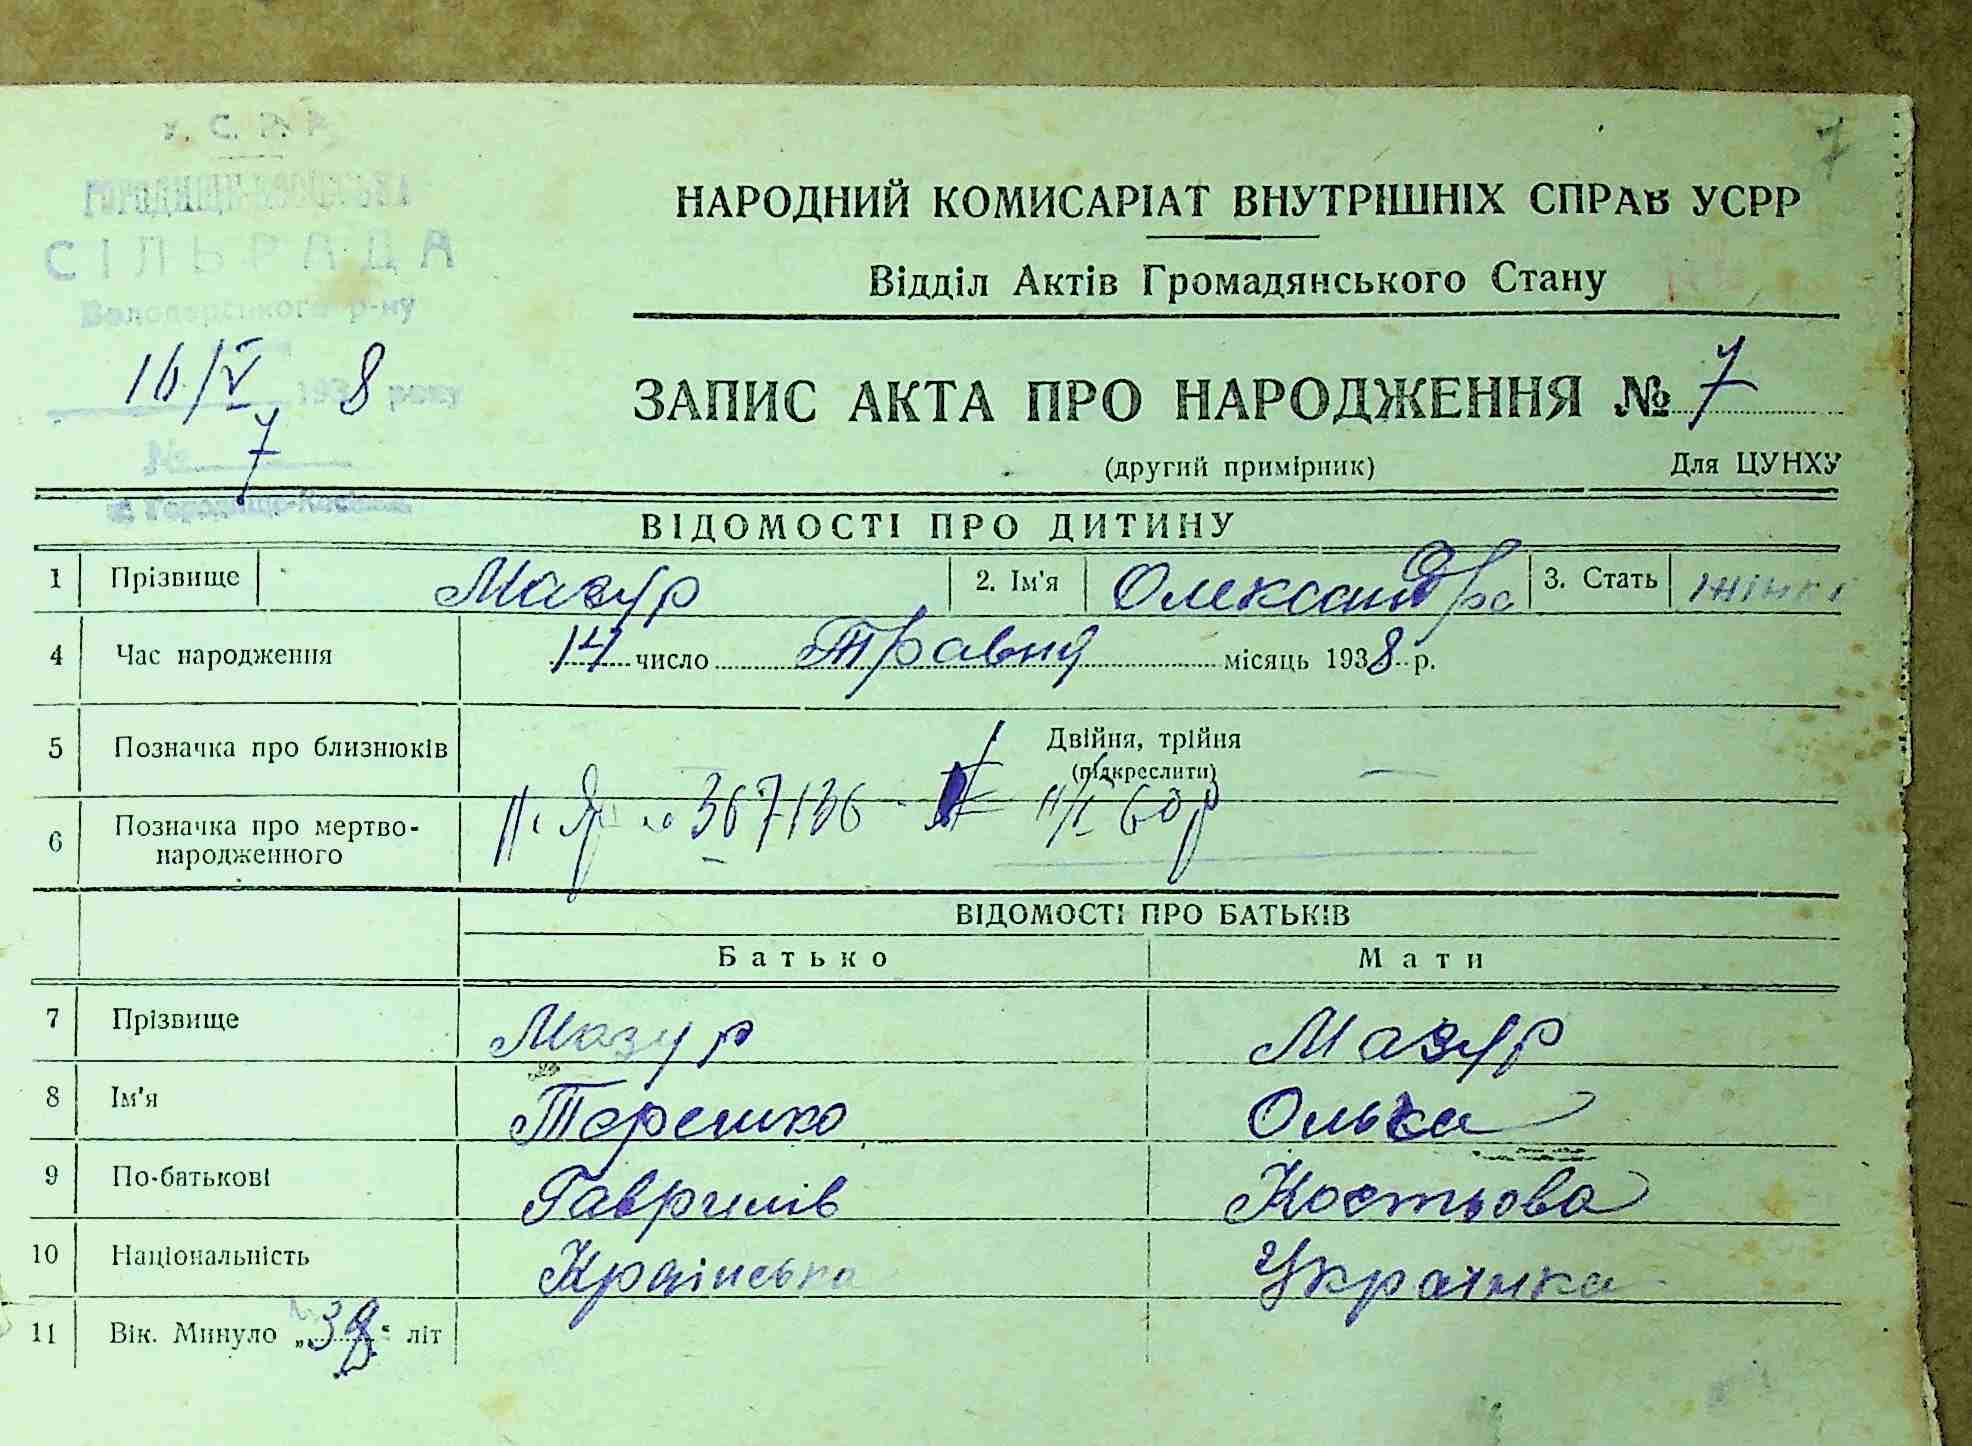 У. С. Р. Р.
7
ГОРОДИЩЕ-КОСІВСЬКА
СІЛЬРАДА
Володарського р-ну
16/V 1938 року
№ 7
Городище-Косівка
НАРОДНИЙ КОМИСАРІАТ ВНУТРІШНІХ СПРАВ УСРР
Відділ Актів Громадянського Стану
ЗАПИС АКТА ПРО НАРОДЖЕННЯ № 7
(другий примірник) Для ЦУНХУ
ВІДОМОСТІ ПРО ДИТИНУ
1 Прізвище Мазур 2. Ім'я Олександра 3. Стать жінка
4 Час народження 14 число Травня місяць 1938 р.
5 Позначка про близнюків Двійня, трійня
(підкреслити)
367136
6 Позначка про мертво-
народженного
ВІДОМОСТІ ПРО БАТЬКІВ
Батько Мати
7 Прізвище Мазур Мазур
8 Ім'я Терешко Олька
9 По-батькові Гаврилів Костьова
10 Національність Країнська Українка
11 Вік. Минуло „38“ літ